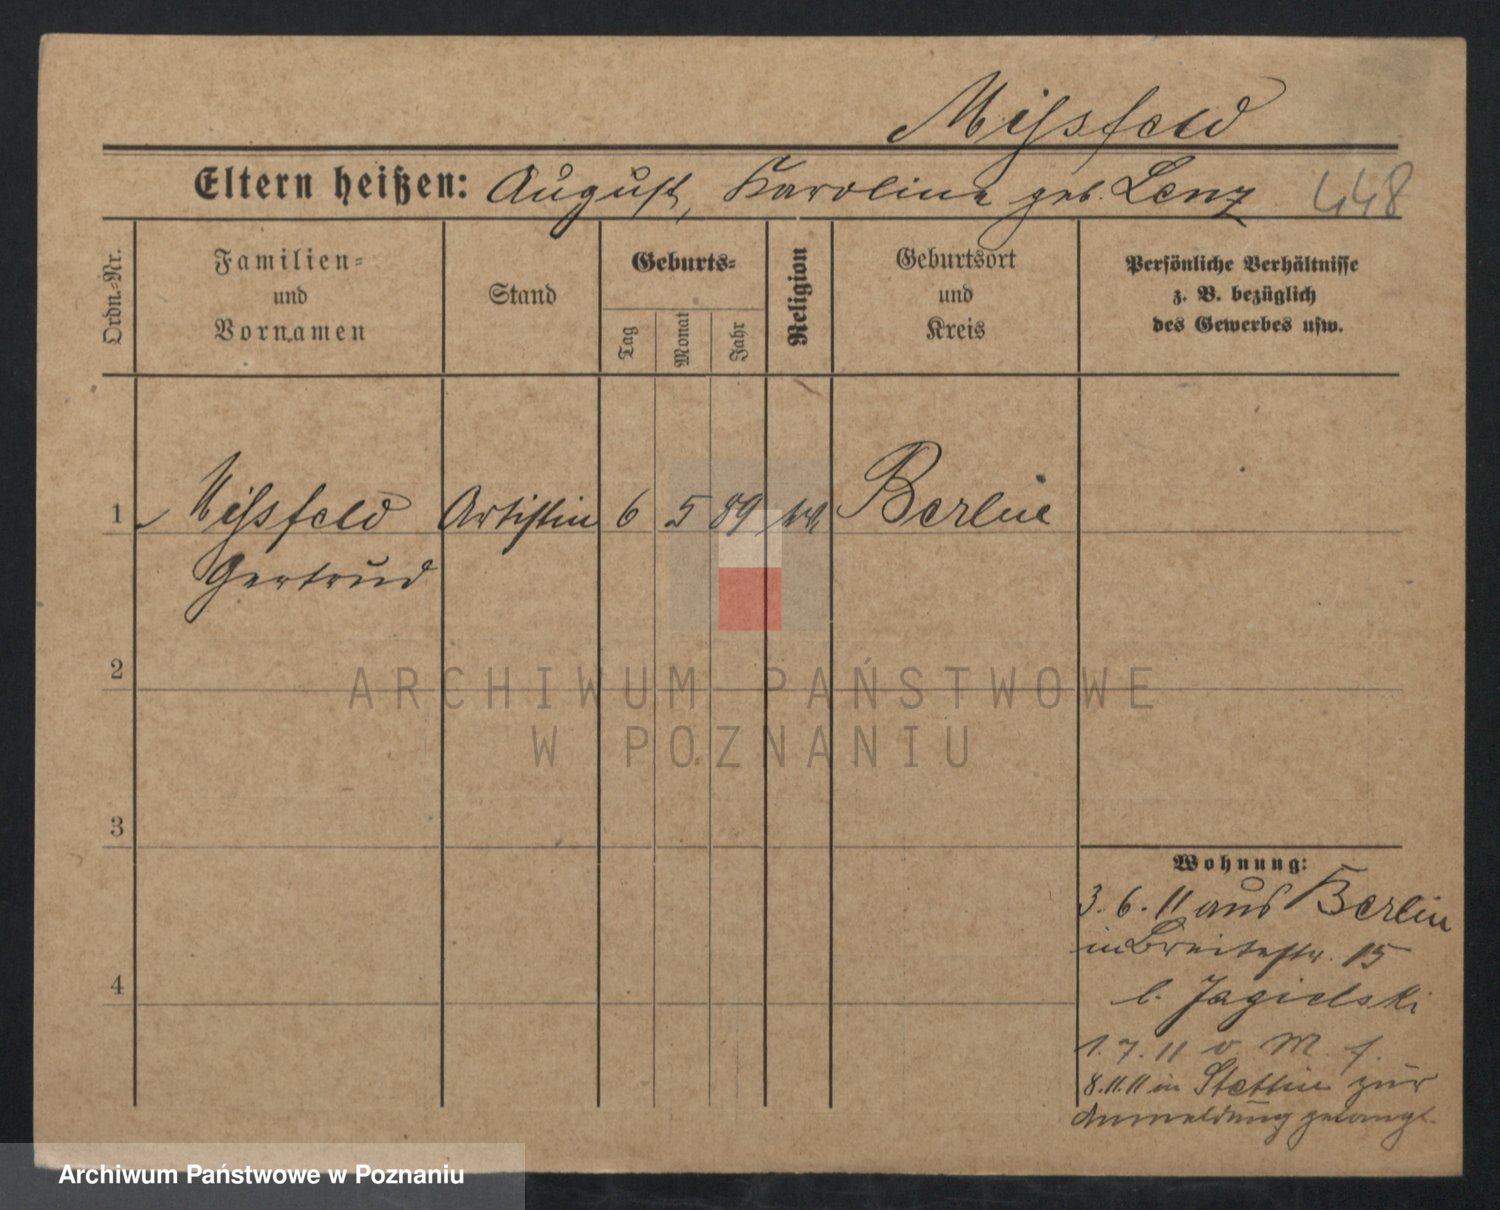 Missfeld
Eltern heißen: August, Karoline geb. Lenz 448
Ordn.-Nr.
Familien-
und
Vornamen
Stand
Geburts-
Tag
Monat
Jahr
Religion
Geburtsort
und
Kreis
Persönliche Verhältnisse
z. B. bezüglich
des Gewerbes usw.
1 Missfeld Artistin 6 5 89 Berlin
Gertrud
2
3
4
ARCHIWUM PAŃSTWOWE
W POZNANIU
Wohnung:
3.6.11 aus Berlin
in Breitestr. 15
b. Jagielski
1.7.11 v. M. f.
8.11.11 in Stettin zur
Anmeldung gelangt.
Archiwum Państwowe w Poznaniu